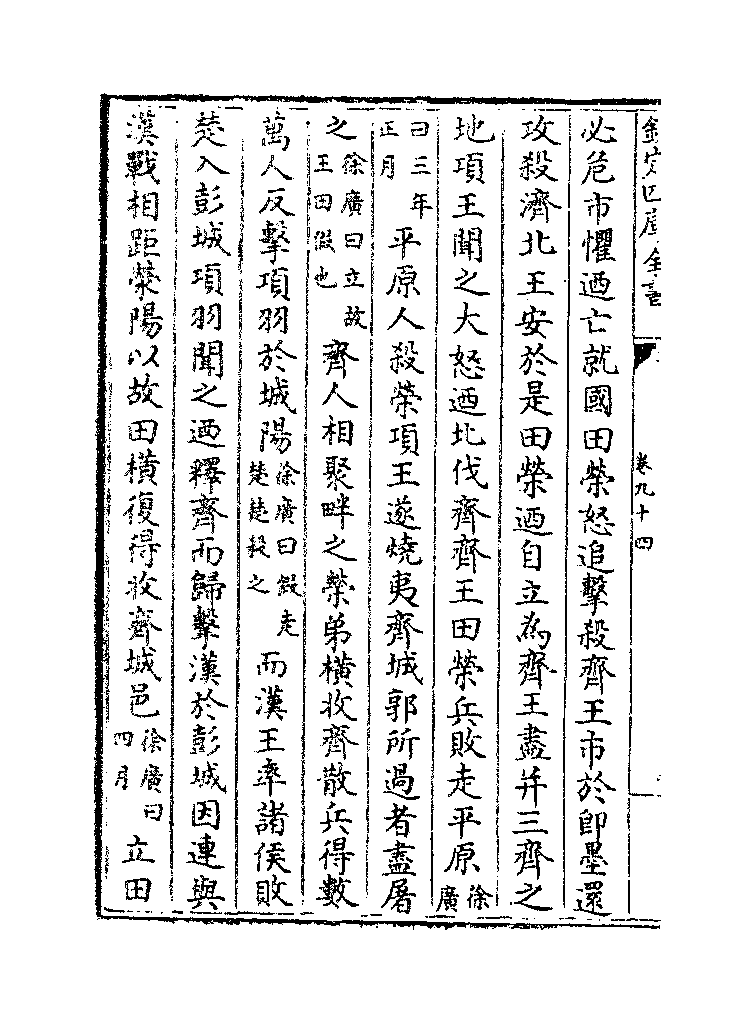 欽定四庫全書
卷九十四
必危市懼迺亡就國田榮怒追擊殺齊王市於即墨還
攻殺濟北王安於是田榮迺自立為齊王盡并三齊之
地項王聞之大怒迺北伐齊齊王田榮兵敗走平原徐廣
曰三年正月平原人殺榮項王遂燒夷齊城郭所過者盡屠
之徐廣曰立故王田假也齊人相聚畔之榮弟橫收齊散兵得數
萬人反擊項羽於城陽徐廣曰假走楚楚殺之而漢王率諸侯敗
楚入彭城項羽聞之迺釋齊而歸擊漢於彭城因連與
漢戰相距滎陽以故田橫復得收齊城邑徐廣曰四月立田